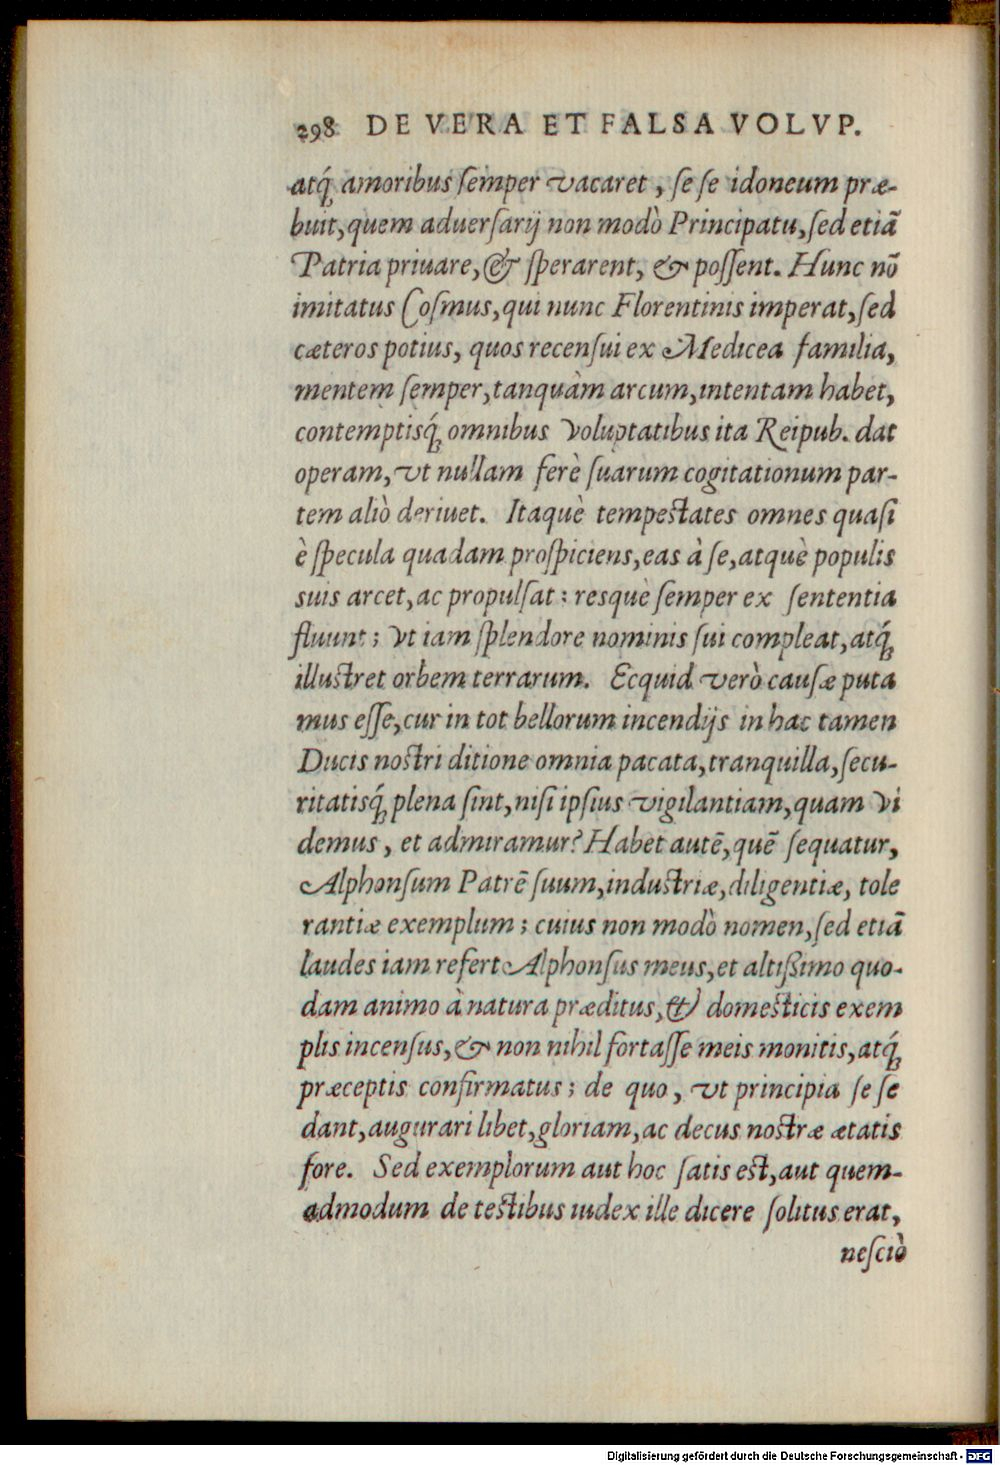 298 DE VERA ET FALSA VOLVP.
atq́; amoribus ſemper vacaret, ſe ſe idoneum præ-
buit, quem aduerſarij non modò Principatu, ſed etiã
Patria priuare, & ſperarent, & poſſent. Hunc nõ
imitatus Coſmus, qui nunc Florentinis imperat, ſed
cæteros potius, quos recenſui ex Medicea familia,
mentem ſemper, tanquàm arcum, intentam habet,
contemptisq́; omnibus voluptatibus ita Reipub. dat
operam, vt nullam ferè ſuarum cogitationum par-
tem aliò deriuet. Itaquè tempeſtates omnes quaſi
è ſpecula quadam proſpiciens, eas à ſe, atquè populis
suis arcet, ac propulſat: resquè ſemper ex ſententia
fluunt; vt iam ſplendore nominis ſui compleat, atq́;
illuſtret orbem terrarum. Ecquid verò cauſæ puta
mus eſſe, cur in tot bellorum incendijs in hac tamen
Ducis noſtri ditione omnia pacata, tranquilla, ſecu-
ritatisq́; plena ſint, niſi ipſius vigilantiam, quam vi
demus, et admiramur? Habet autẽ, quẽ ſequatur,
Alphonſum Patrẽ ſuum, induſtriæ, diligentiæ, tole
rantiæ exemplum; cuius non modò nomen, ſed etiã
laudes iam refert Alphonſus meus, et altißimo quo-
dam animo à natura præditus, & domeſticis exem
plis incenſus, & non nihil fortaſſe meis monitis, atq́;
præceptis confirmatus; de quo, vt principia ſe ſe
dant, augurari libet, gloriam, ac decus noſtræ ætatis
fore. Sed exemplorum aut hoc ſatis eſt, aut quem-
admodum de teſtibus iudex ille dicere ſolitus erat,
neſciò
Digitalisierung gefördert durch die Deutsche Forschungsgemeinschaft - DFG